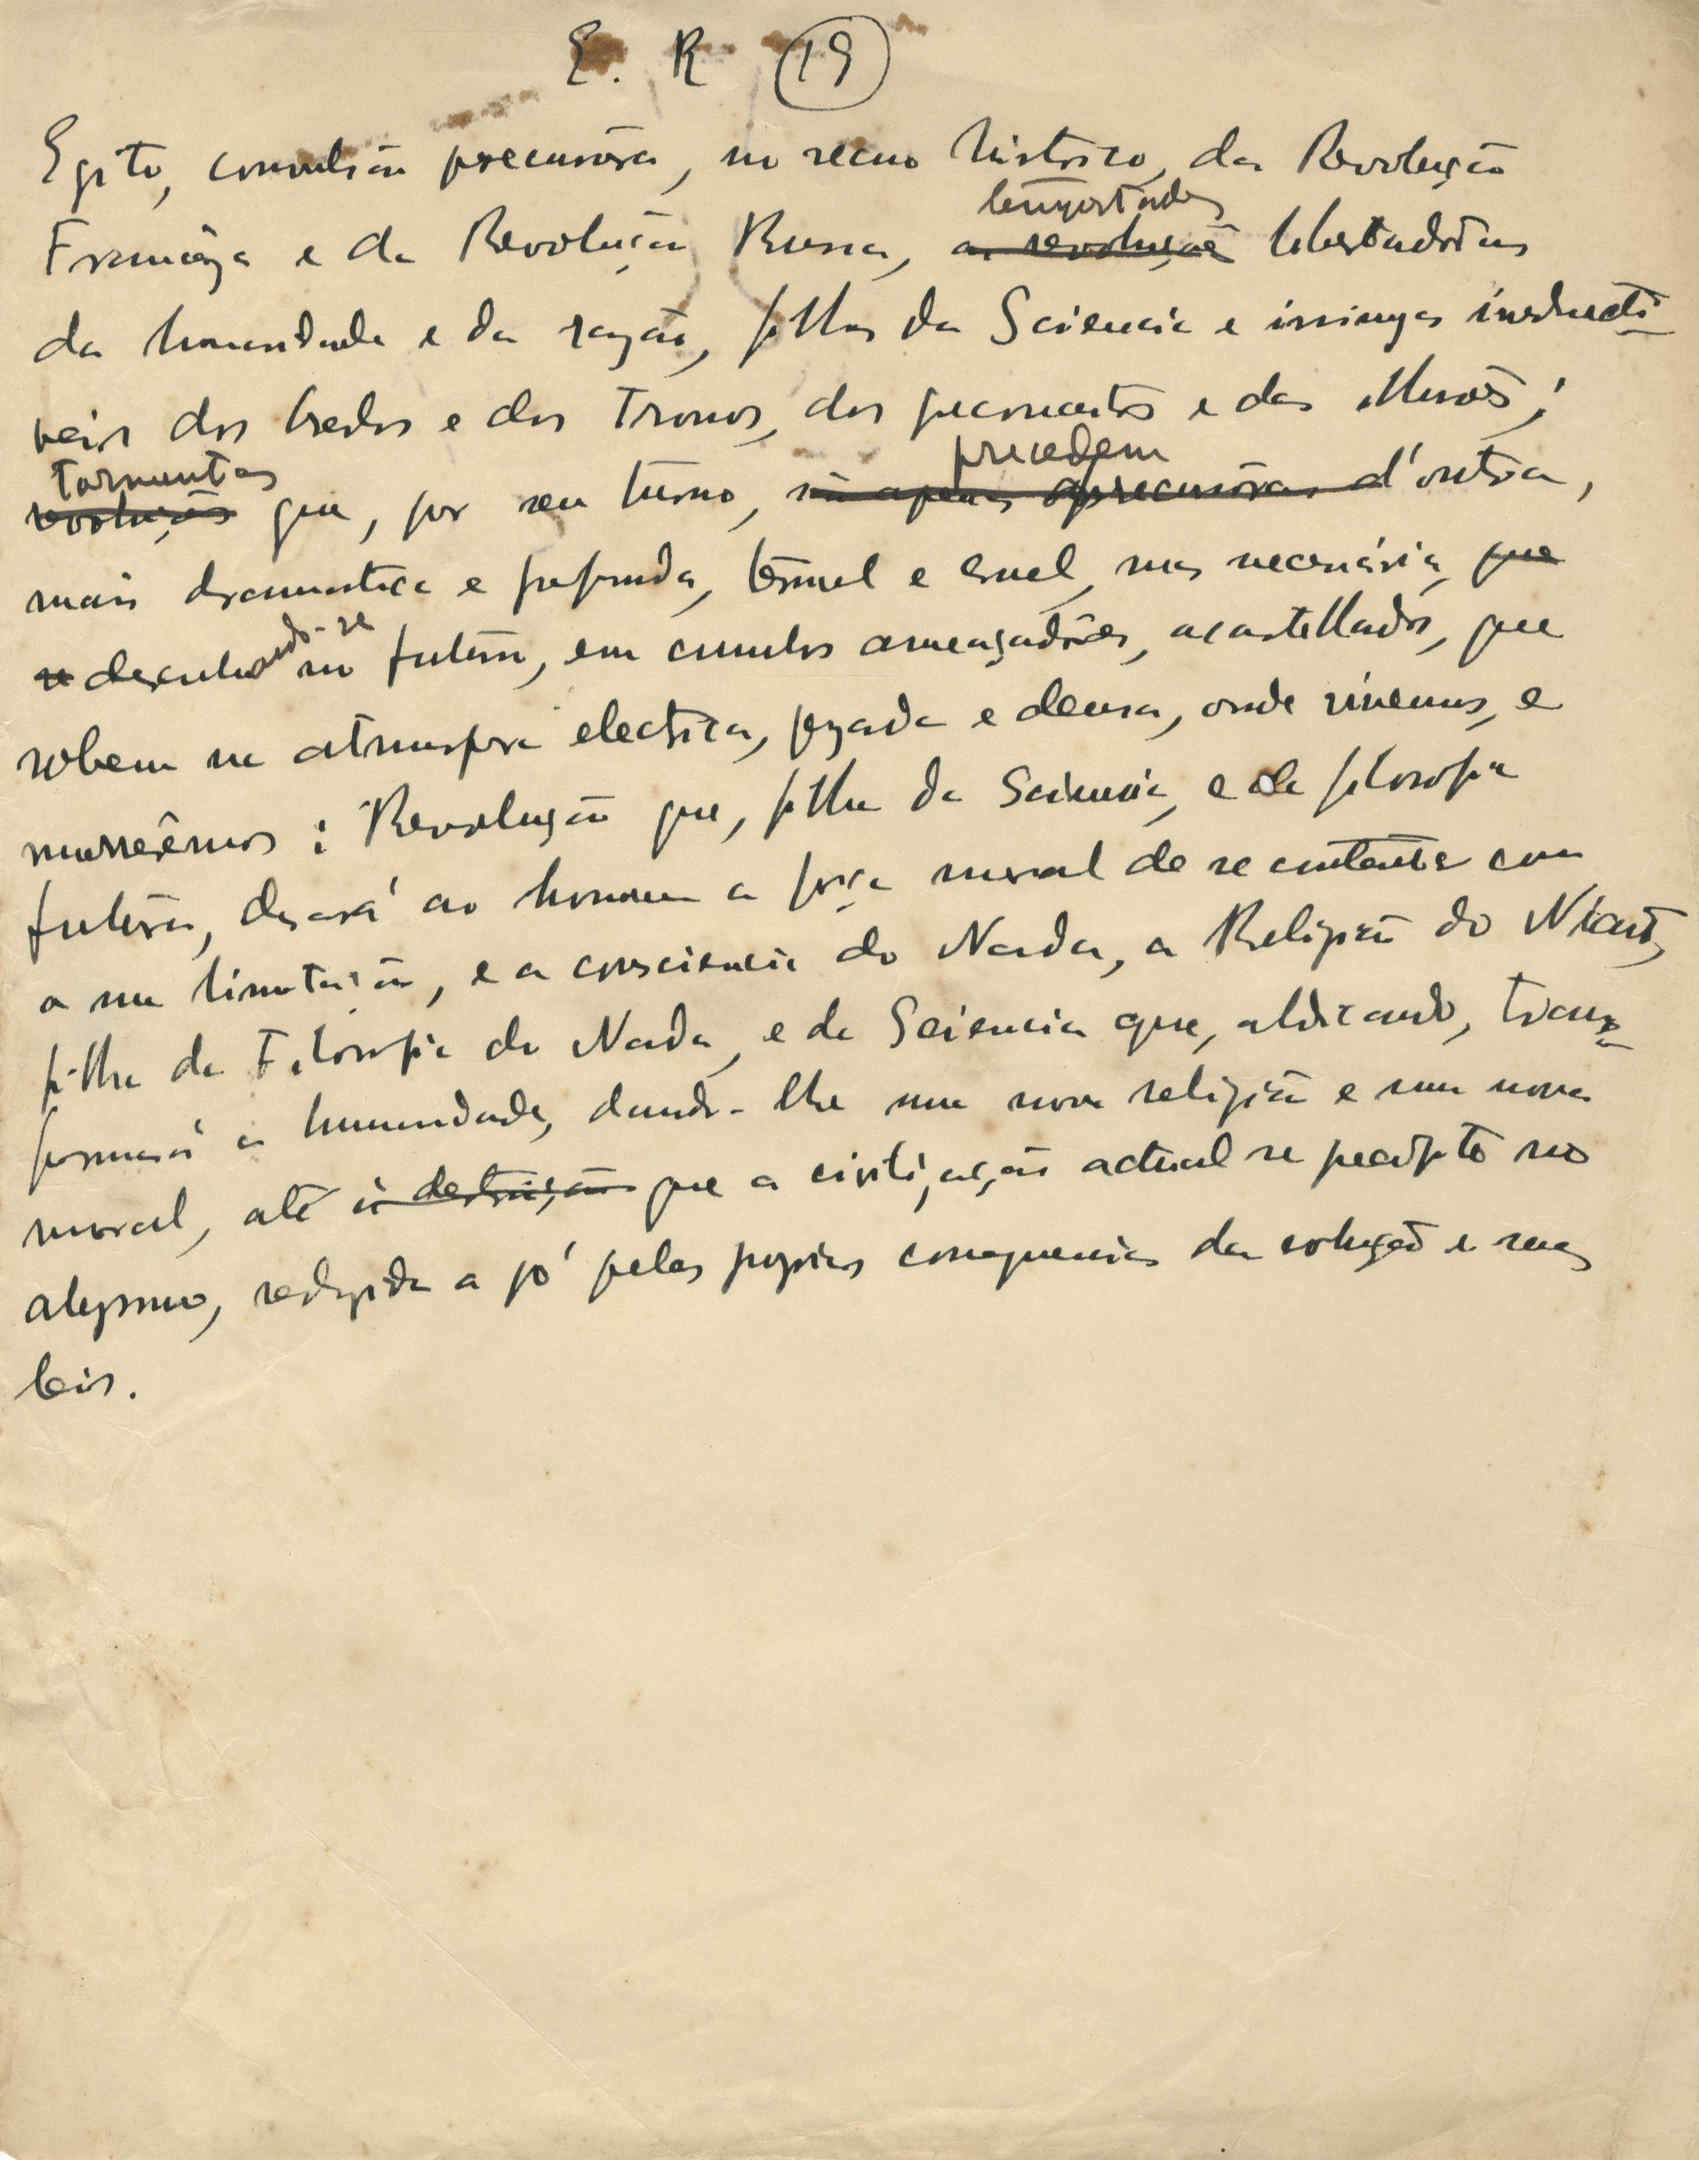 E. R 19
Egito, convulsão precursôra, no recuo histórico, da Revolução
tempestades
Francêza e da Revolução Russa, as revoluções libertadôras
da humanidade e da razão, filhas da Sciencia e inimigas irreducti-
veis dos Credos e dos Tronos, dos preconceitos e das
tormentas
precedem
revoluções que, por seu turno, são apenas precursôras d'outra,
mais dramatica e profunda, terrivel e cruel, mas necessária, que
se desenha ando-se no futuro, em cumulos ameaçadôres, acastellados, que
sobem na atmosfera electrica, pezada e densa, onde vivemos, e
morrêmos: Revolução que, filha da Sciencia, e da filosofia
futura, dará ao homem a força moral de se contentar com
a sua limitação, e a consciencia do Nada, a Religião do Nada,
filha da Filosofia do Nada, e da Sciencia que, abdicando, trans-
formará a humanidade, dando-lhe uma nova religião e uma nova
moral, até à destruição que a civilização actual se precipite no
abysmo, reduzida a pó pelas proprias consequencias da evolução e suas
leis.